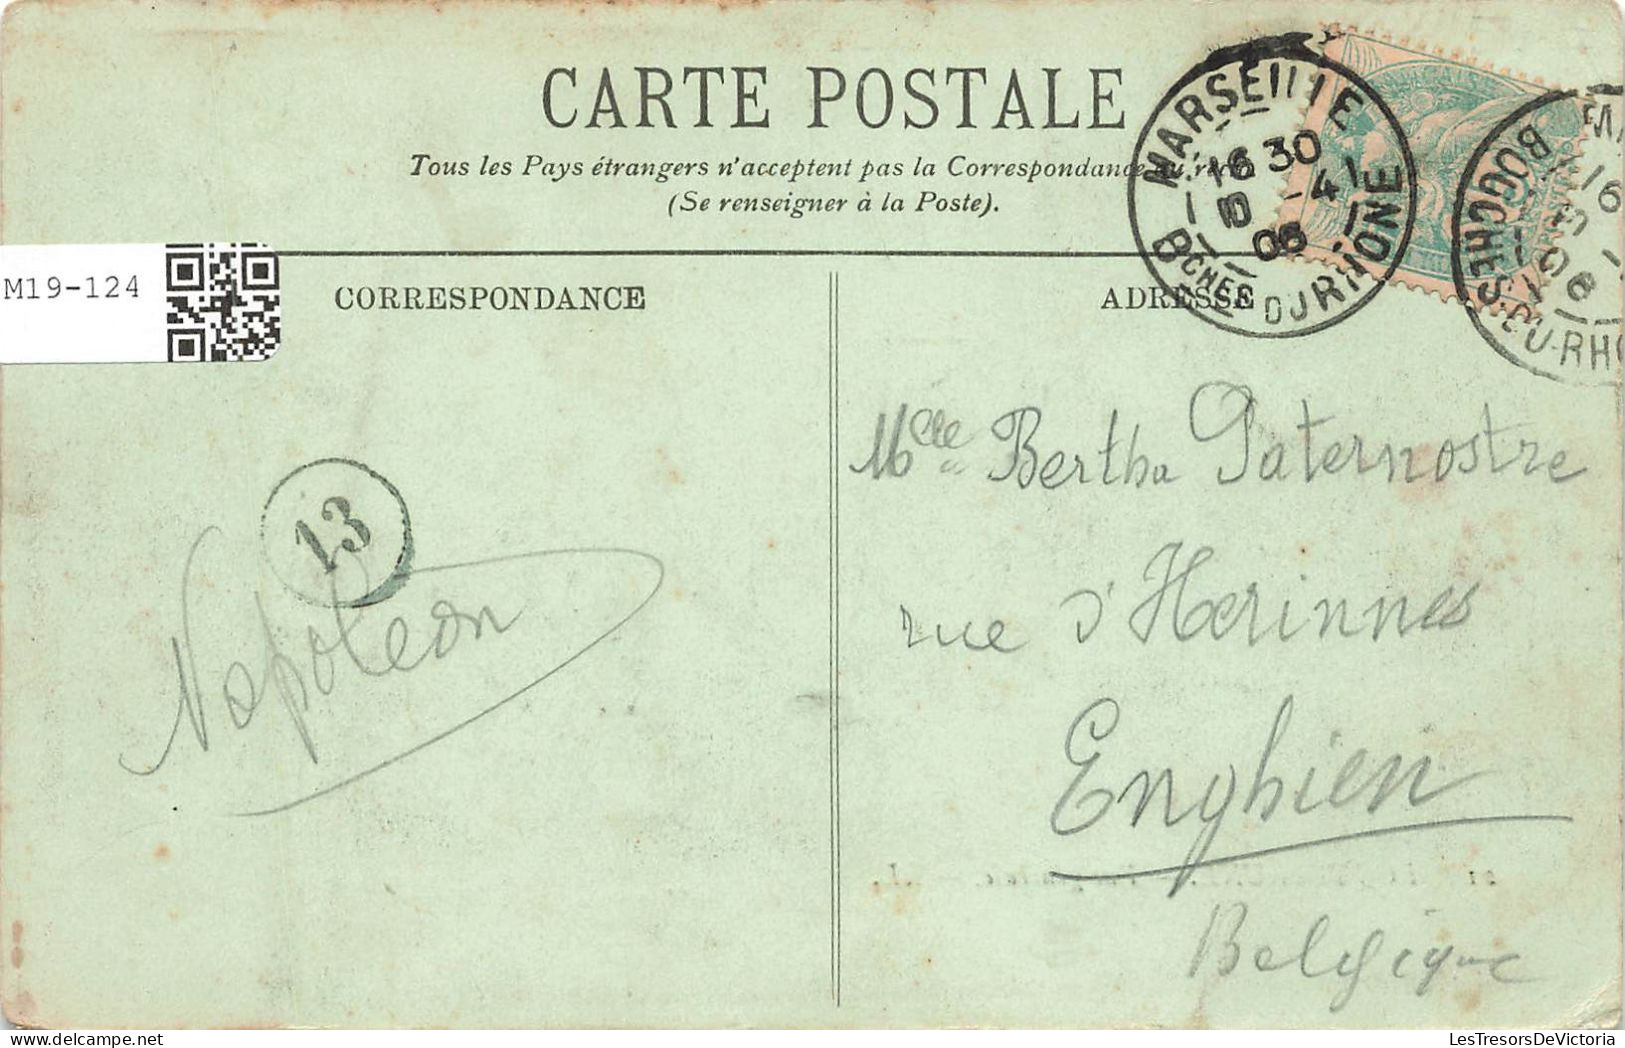 CARTE POSTALE
Tous les Pays étrangers n'acceptent pas la Correspondance au recto
(Se renseigner à la Poste).
MARSEILLE
16 30
10 -4
06
BCHES DU RHONE
16
06
BOUCHES-DU-RHO
M19-124
CORRESPONDANCE
ADRESSE
13
Napoleon
Melle Bertha Paternostre
rue d'Herinnes
Enghien
Belgique
LesTresorsDeVictoria